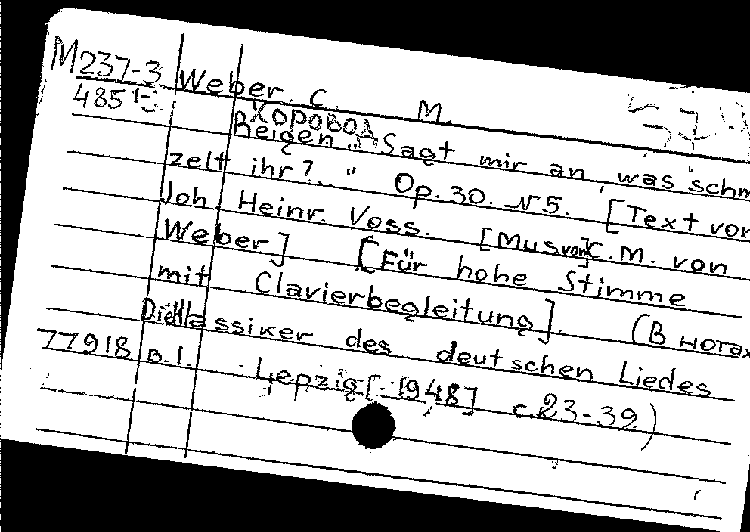 M237-3 Weber C. M.
485
Хоровод
Reigen. „Sagt mir an, was schm
zelt ihr?.." Op. 30. N5. [Text von
Joh. Heinr. Voss. [Mus von C. M. von
Weber] [Für hohe Stimme
mit Clavierbegleitung]. (В нотах
Die Klassiker des deutschen Liedes
77918 B. 1. Lepzig [1948] c. 23-39)